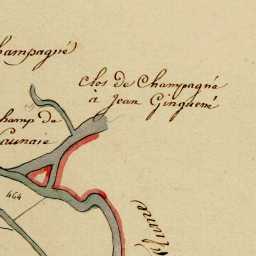 hampagné
clos de Champagné
à Jean Ginguené
hamp de
aunaie
464